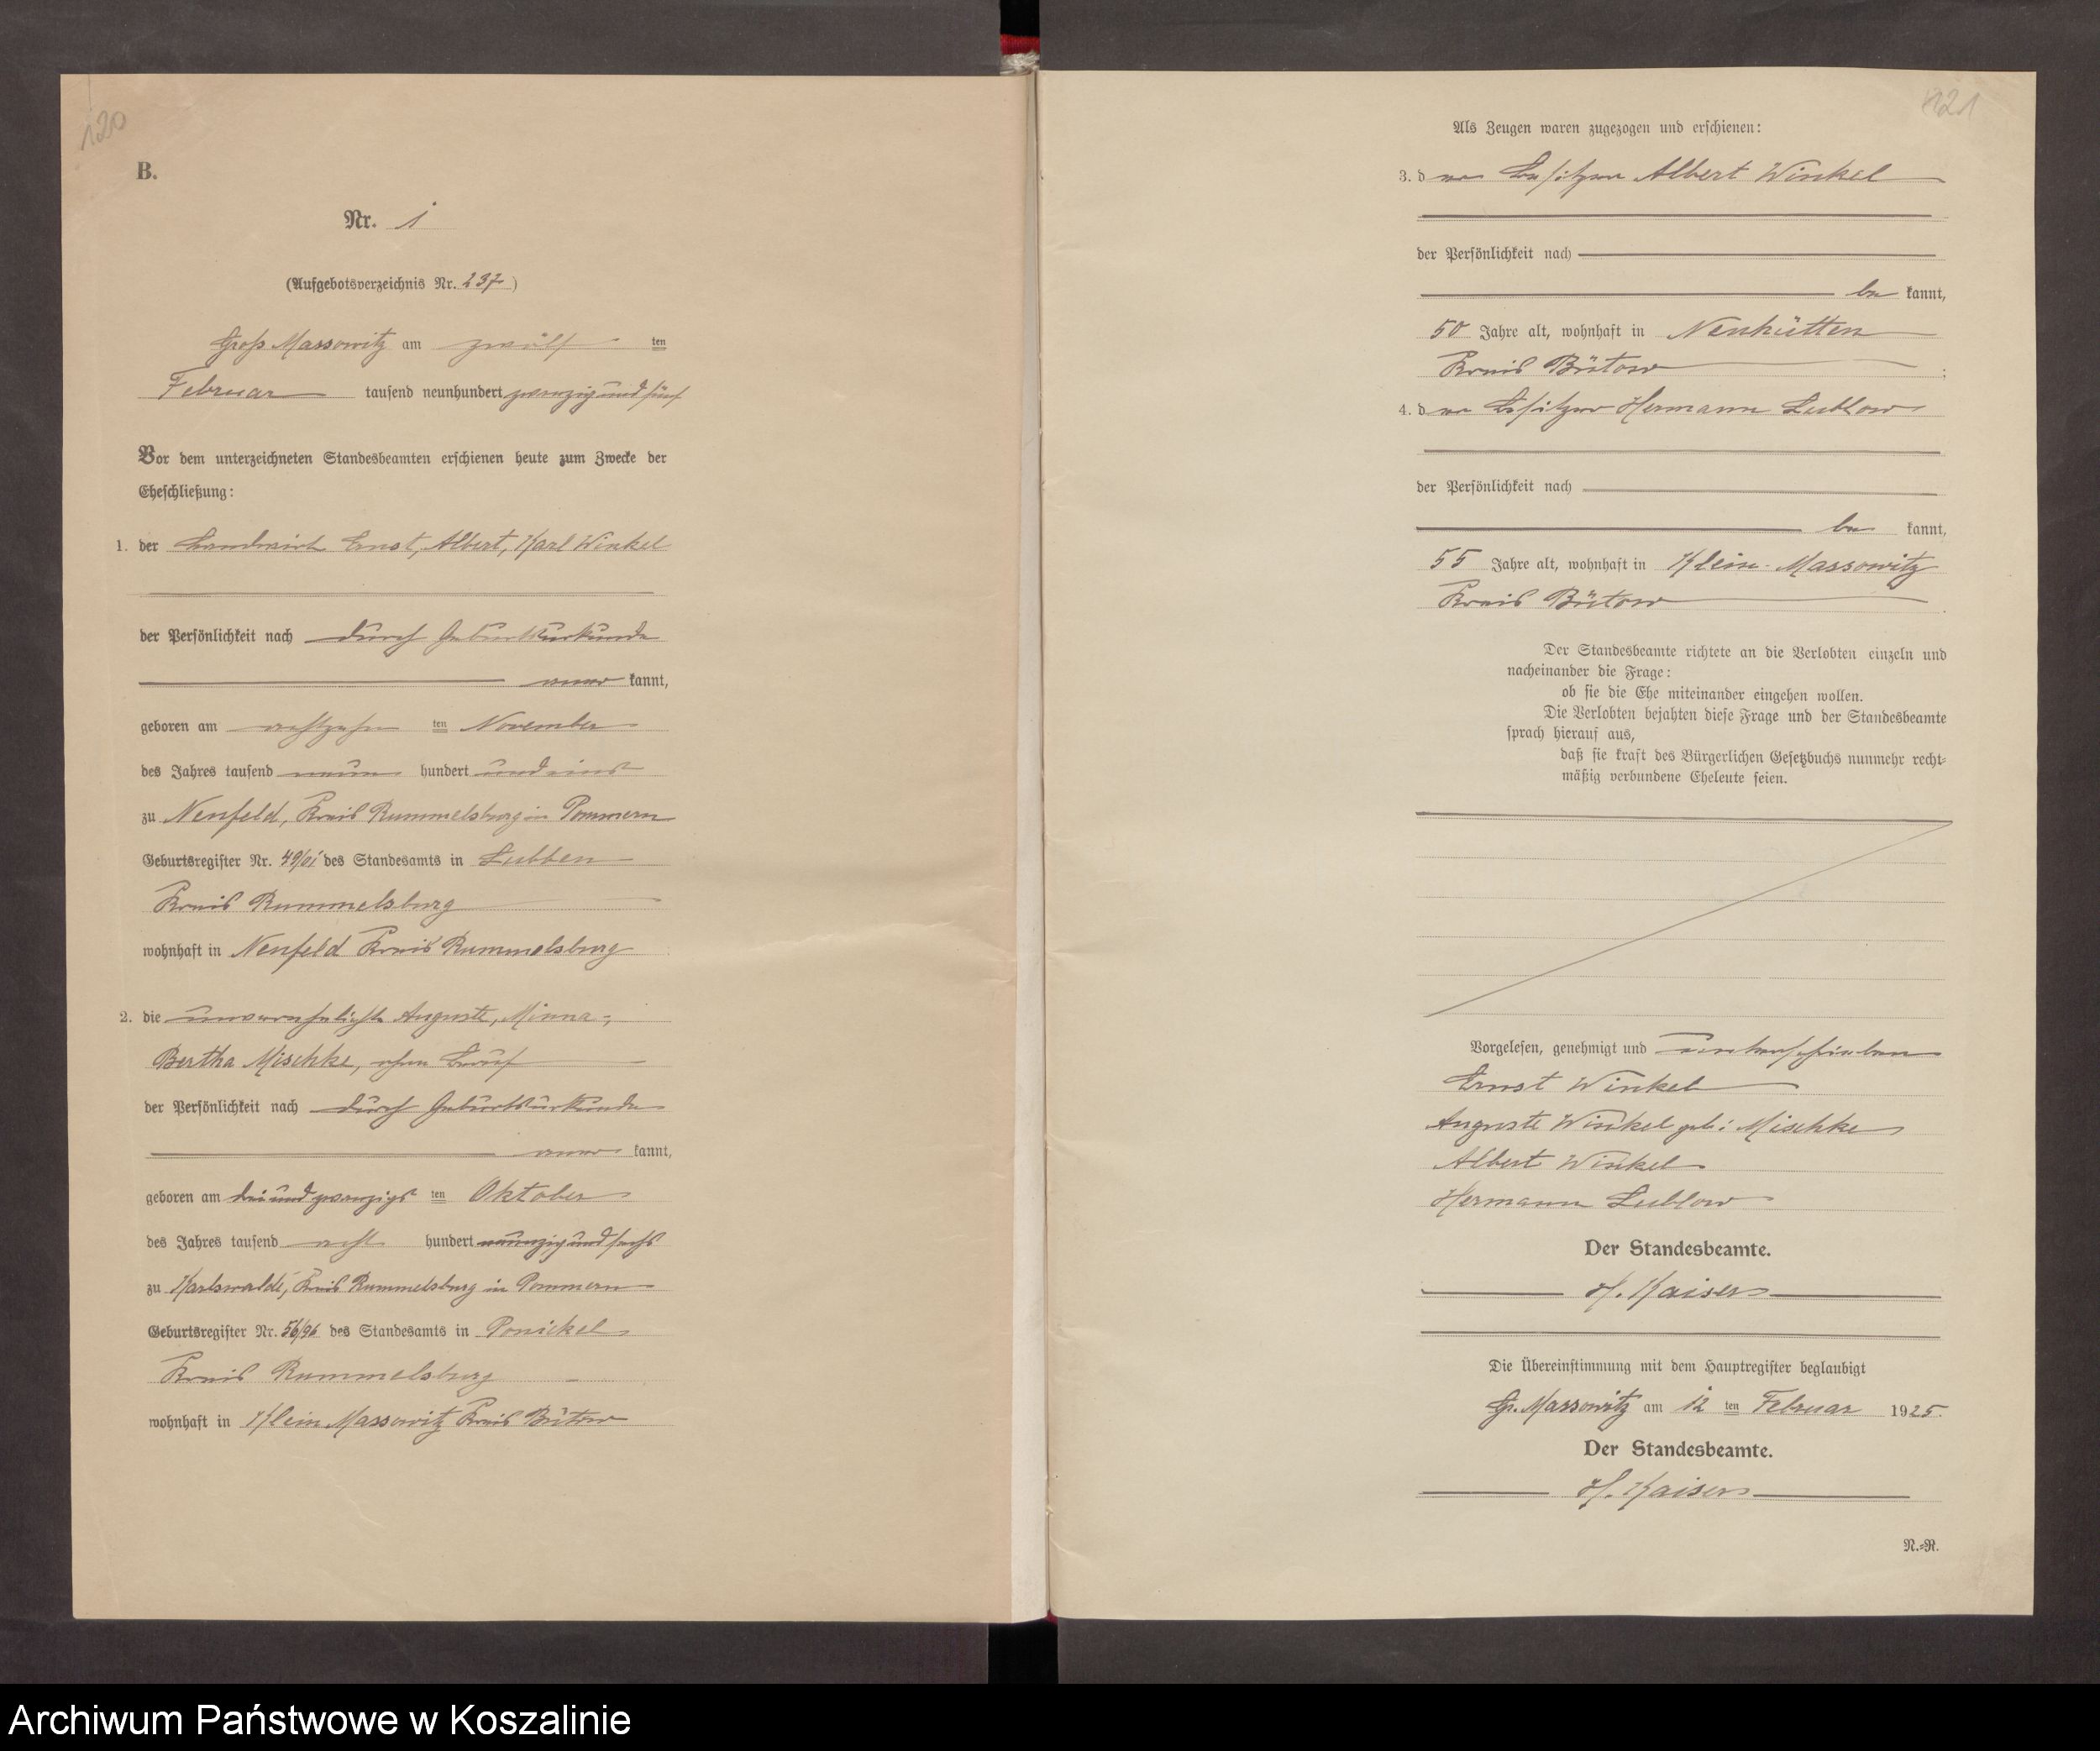 120
B.
Nr. 1
(Aufgebotsverzeichnis Nr. 237)
Groß Massowitz am zwölf ten
Februar tausend neunhundert zwanzig und fünf
Vor dem unterzeichneten Standesbeamten erschienen heute zum Zwecke der
Eheschließung:
1. der Landwirt Ernst, Albert, Karl Winkel
der Persönlichkeit nach durch Geburtsurkunde
aner kannt,
geboren am achtzehn ten November
des Jahres tausend neun hundert und eins
zu Neufeld, Kreis Rummelsburg in Pommern
Geburtsregister Nr. 49/01 des Standesamts in Lubben
Kreis Rummelsburg
wohnhaft in Neufeld Kreis Rummelsburg
2. die unverehelichte Auguste, Minna,
Bertha Mischke, ohne Beruf
der Persönlichkeit nach durch Geburtsurkunde
aner kannt,
geboren am dreiundzwanzigs ten Oktober
des Jahres tausend acht hundert neunzig und sechs
zu Karlswalde, Kreis Rummelsburg in Pommern
Geburtsregister Nr. 56/96 des Standesamts in Ponickel
Kreis Rummelsburg
wohnhaft in Klein Massowitz Kreis Bütow
121
Als Zeugen waren zugezogen und erschienen:
3. d er Besitzer Albert Winkel
der Persönlichkeit nach
be kannt,
50 Jahre alt, wohnhaft in Neuhütten
Kreis Bütow ;
4. d er Besitzer Hermann Lublow
der Persönlichkeit nach
be kannt,
55 Jahre alt, wohnhaft in Klein-Massowitz
Kreis Bütow .
Der Standesbeamte richtete an die Verlobten einzeln und
nacheinander die Frage:
ob sie die Ehe miteinander eingehen wollen.
Die Verlobten bejahten diese Frage und der Standesbeamte
sprach hierauf aus,
daß sie kraft des Bürgerlichen Gesetzbuchs nunmehr recht-
mäßig verbundene Eheleute seien.
Vorgelesen, genehmigt und unterschrieben
Ernst Winkel
Auguste Winkel geb: Mischke
Albert Winkel
Hermann Lublow
Der Standesbeamte.
H. Kaiser
Die Übereinstimmung mit dem Hauptregister beglaubigt
Gr. Massowitz am 12 ten Februar 1925.
Der Standesbeamte.
H. Kaiser
N.-R.
Archiwum Państwowe w Koszalinie